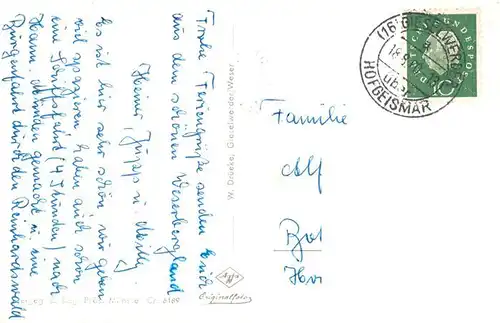 Frohe Feriengrüße senden Euch
aus dem schönen Weserbergland
Heiner, Jupp u. Melly
Es ist hier sehr schön wir gehen
viel spazieren haben auch schon
eine Schiffsfahrt (4 Stunden) nach
Hann. Münden gemacht u. eine
Burgenfahrt durch den Reinhardswald
W. Drücke, Gieselwerder Weser
Agfa
Originalfoto
(16) GIESELWERDER
über
HOFGEISMAR
BUNDESPOST
10
Familie
Alf
Bot